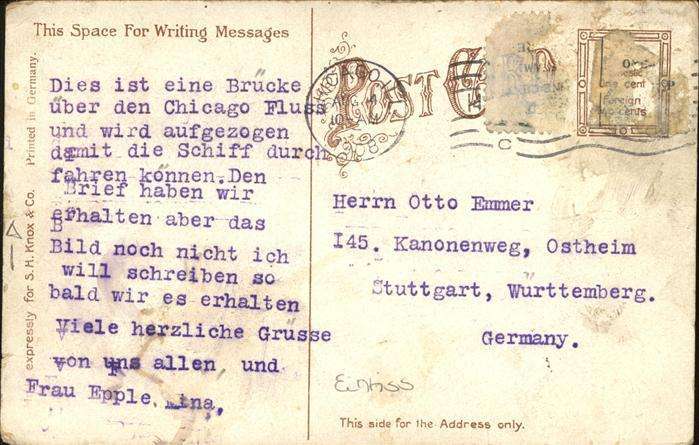 This Space For Writing Messages
expressly for S. H. Knox & Co. Printed in Germany.
Dies ist eine Brücke
über den Chicago Fluss
und wird aufgezogen
damit die Schiff durch
fahren können.Den
Brief haben wir
erhalten aber das
Bild noch nicht ich
will schreiben so
bald wir es erhalten
Viele herzliche Grusse
von uns allen und
Frau Epple. Lina,
POST CARD
CHICAGO, ILL
AUG 4
1908
Domestic
One cent
Foreign
Two cents
Herrn Otto Emmer
I45. Kanonenweg, Ostheim
Stuttgart, Württemberg.
Germany.
This side for the Address only.